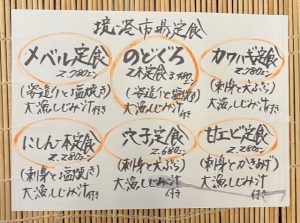 境港市場定食
メバル定食
2,780円
(姿造りと塩焼き)
大漁しじみ汁付き
のどくろ
2本定食 3,480円
(姿造りと塩焼き)
大漁しじみ汁付き
カワハギ定食
2,780円
(刺身と天ぷら)
大漁しじみ汁付き
にしん一本定食
2,280円
(刺身と塩焼き)
大漁しじみ汁付き
穴子定食
2,680円
(刺身と天ぷら)
大漁しじみ汁付き
甘エビ定食
2,280円
(刺身とかきあげ)
大漁しじみ汁付き